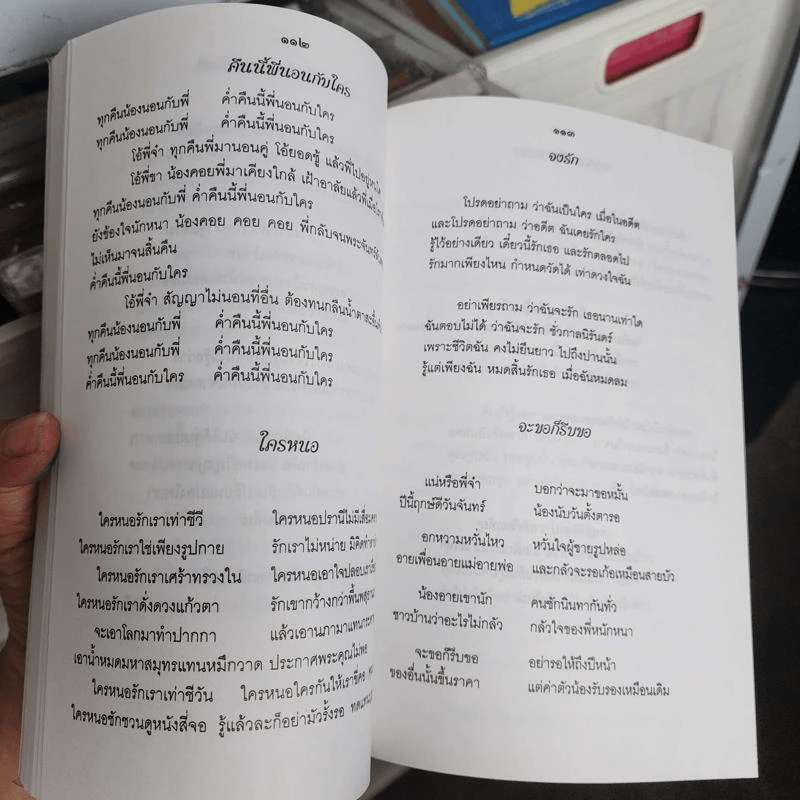 ๑๑๒
คืนนี้พี่นอนกับใคร
ทุกคืนน้องนอนกับพี่ ค่ำคืนนี้พี่นอนกับใคร
ทุกคืนน้องนอนกับพี่ ค่ำคืนนี้พี่นอนกับใคร
โอ้พี่จ๋า ทุกคืนพี่มานอนคู่ โอ้ยอดชู้ แล้วพี่ไปอยู่
โอ้พี่ขา น้องคอยพี่มาเคียงใกล้ เฝ้าอาลัยแล้วพี่
ทุกคืนน้องนอนกับพี่ ค่ำคืนนี้พี่นอนกับใคร
ยังข้องใจนักหนา น้องคอย คอย คอย พี่กลับจนพระจันทร์
ไม่เห็นมาจนสิ้นคืน
ค่ำคืนนี้พี่นอนกับใคร
โอ้พี่จ๋า สัญญาไม่นอนที่อื่น ต้องทนกลืนน้ำตาสะอื้น
ทุกคืนน้องนอนกับพี่ ค่ำคืนนี้พี่นอนกับใคร
ทุกคืนน้องนอนกับพี่ ค่ำคืนนี้พี่นอนกับใคร
ค่ำคืนนี้พี่นอนกับใคร ค่ำคืนนี้พี่นอนกับใคร
ใครหนอ
ใครหนอรักเราเท่าชีวี ใครหนอปรานีไม่มีเสื่อมคลาย
ใครหนอรักเราใช่เพียงรูปกาย รักเราไม่หน่าย มิคิดทำลาย
ใครหนอรักเราเศร้าทรวงใน ใครหนอเอาใจปลอบเรา
ใครหนอรักเราดั่งดวงแก้วตา รักเขากว้างกว่าพื้นพสุธา
จะเอาโลกมาทำปากกา แล้วเอานภามาแทน
เอาน้ำหมดมหาสมุทรแทนหมึกวาด ประกาศพระคุณไม่พอ
ใครหนอรักเราเท่าชีวัน ใครหนอใครกันให้เราขี่คอ
ใครหนอชักชวนดูหนังสี่จอ รู้แล้วละก็อย่ามัวรั้งรอ ทดแทน
๑๑๓
จงรัก
โปรดอย่าถาม ว่าฉันเป็นใคร เมื่อในอดีต
และโปรดอย่าถาม ว่าอดีต ฉันเคยรักใคร
รู้ไว้อย่างเดียว เดี๋ยวนี้รักเธอ และรักตลอดไป
รักมากเพียงไหน กำหนดวัดได้ เท่าดวงใจฉัน
อย่าเพียรถาม ว่าฉันจะรัก เธอนานเท่าใด
ฉันตอบไม่ได้ ว่าฉันจะรัก ชั่วกาลนิรันดร์
เพราะชีวิตฉัน คงไม่ยืนยาว ไปถึงปานนั้น
รู้แต่เพียงฉัน หมดสิ้นรักเธอ เมื่อฉันหมดลม
จะขอก็รีบขอ
แน่หรือพี่จ๋า บอกว่าจะมาขอหมั้น
ปีนี้ฤกษ์ดีวันจันทร์ น้องนับวันตั้งตารอ
อกหวามหวั่นไหว หวั่นใจผู้ชายรูปหล่อ
อายเพื่อนอายแม่อายพ่อ และกลัวจะรอเก้อเหมือนสายบัว
น้องอายเขานัก คนชักนินทากันทั่ว
ชาวบ้านว่าอะไรไม่กลัว กลัวใจของพี่หนักหนา
จะขอก็รีบขอ อย่ารอให้ถึงปีหน้า
ของอื่นนั้นขึ้นราคา แต่ค่าตัวน้องรับรองเหมือนเดิม